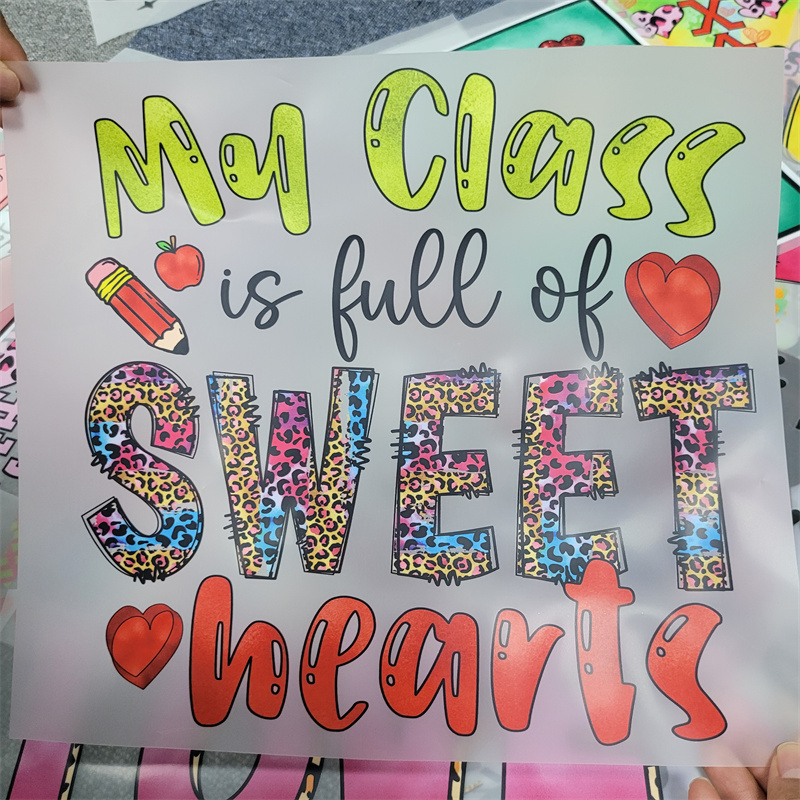 My Class
is full of
SWEET
hearts